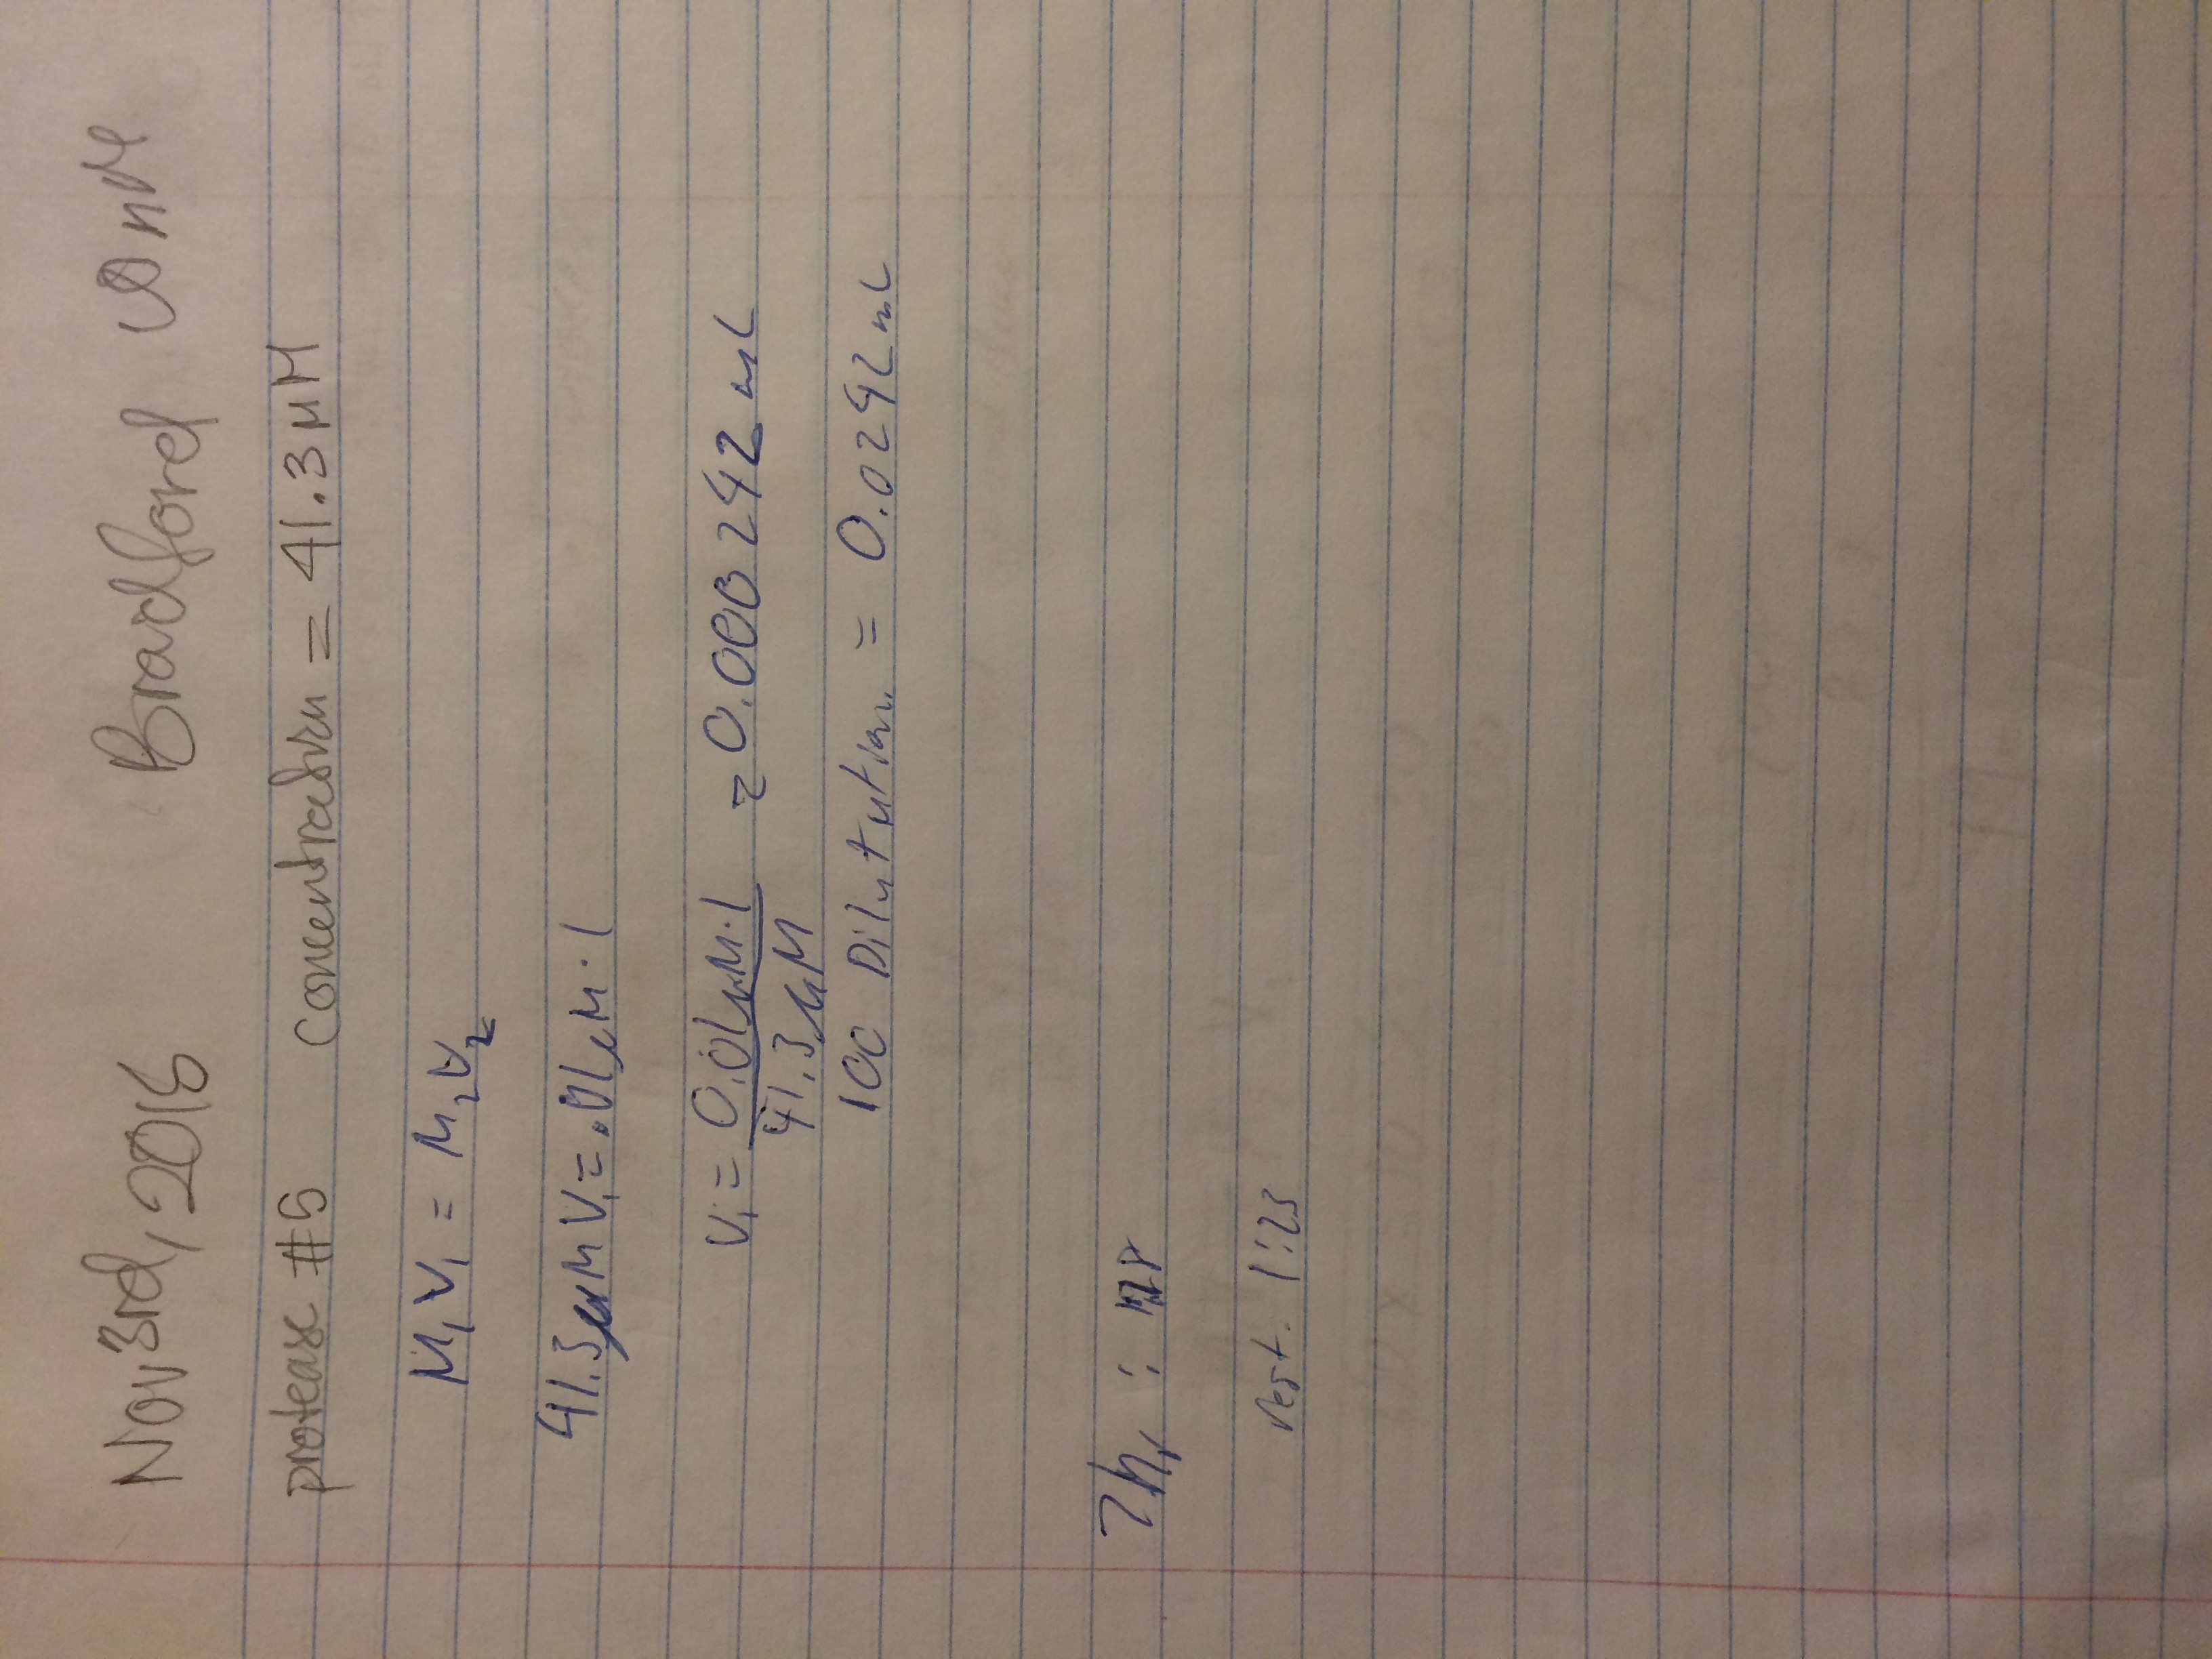 Nov 3rd, 2016 Bradford
protease #5 Concentration = 41.3 μM
M₁V₁ = M₂V₂
41.3 μM V₁ = .01 μM · 1
V₁ = 0.01 μM · 1 / 41.3 μM = 0.000242 mL
100 Dilutution = 0.0242 mL
1:23